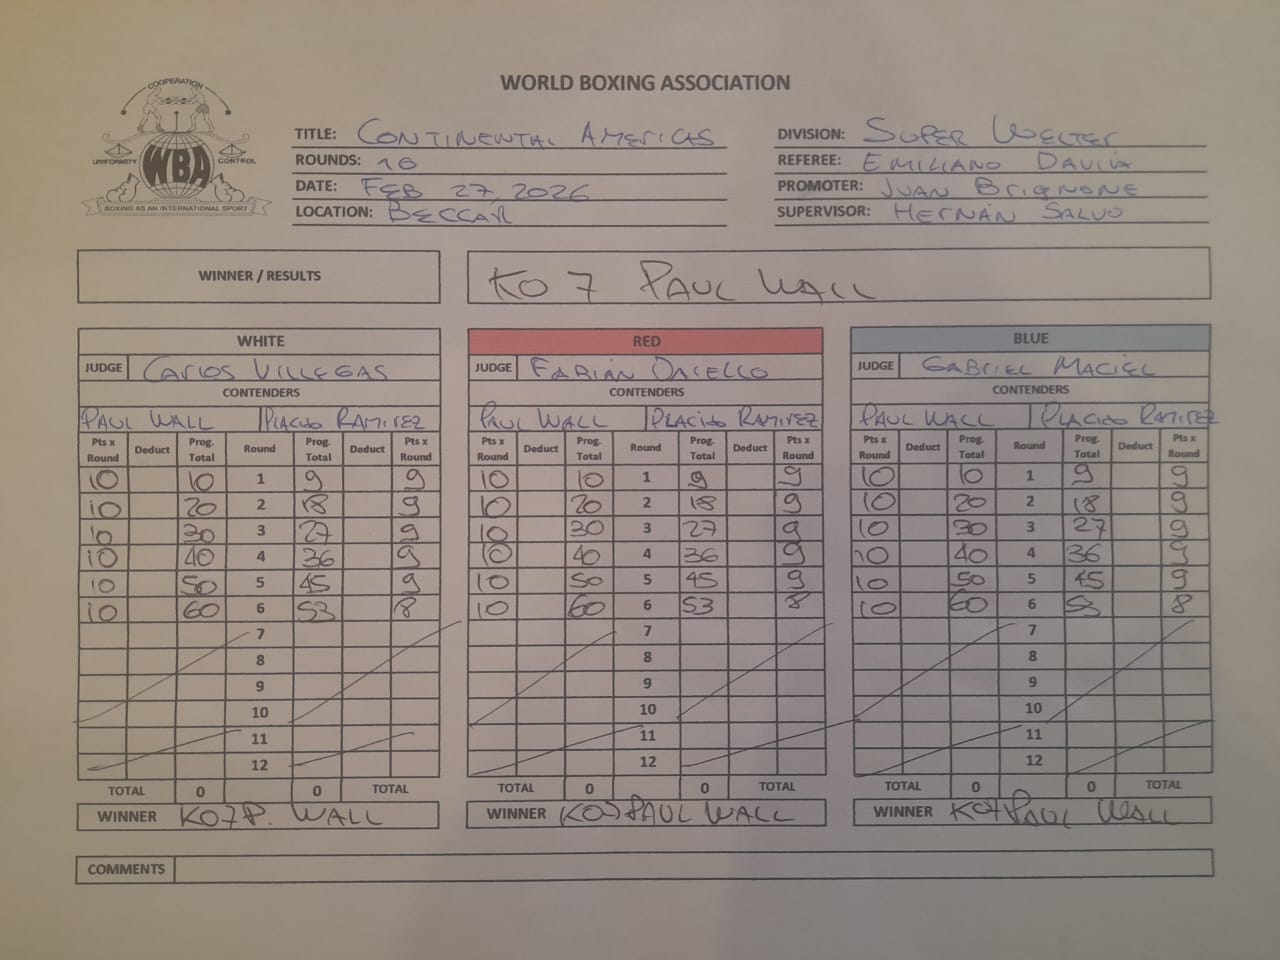 WORLD BOXING ASSOCIATION
COOPERATION
UNIFORMITY CONTROL
WBA
BOXING AS AN INTERNATIONAL SPORT
TITLE: CONTINENTAL AMERICAS
ROUNDS: 10
DATE: FEB 27, 2026
LOCATION: BECCAR
DIVISION: SUPER WELTER
REFEREE: EMILIANO DAVIÑA
PROMOTER: JUAN BRIGNONE
SUPERVISOR: HERNÁN SALVO
WINNER / RESULTS KO 7 PAUL WALL
WHITE
JUDGE CARLOS VILLEGAS
CONTENDERS
PAUL WALL PLACIDO RAMIREZ
Pts x Round Deduct Prog. Total Round Prog. Total Deduct Pts x Round
10 10 1 9 9
10 20 2 18 9
10 30 3 27 9
10 40 4 36 9
10 50 5 45 9
10 60 6 53 8
7
8
9
10
11
12
TOTAL 0 0 TOTAL
WINNER KO7 P. WALL
RED
JUDGE FABIÁN
CONTENDERS
PAUL WALL PLACIDO RAMIREZ
Pts x Round Deduct Prog. Total Round Prog. Total Deduct Pts x Round
10 10 1 9 9
10 20 2 18 9
10 30 3 27 9
10 40 4 36 9
10 50 5 45 9
10 60 6 53 8
7
8
9
10
11
12
TOTAL 0 0 TOTAL
WINNER KO7 PAUL WALL
BLUE
JUDGE GABRIEL MACIEL
CONTENDERS
PAUL WALL PLACIDO RAMIREZ
Pts x Round Deduct Prog. Total Round Prog. Total Deduct Pts x Round
10 10 1 9 9
10 20 2 18 9
10 30 3 27 9
10 40 4 36 9
10 50 5 45 9
10 60 6 53 8
7
8
9
10
11
12
TOTAL 0 0 TOTAL
WINNER KO7 PAUL WALL
COMMENTS